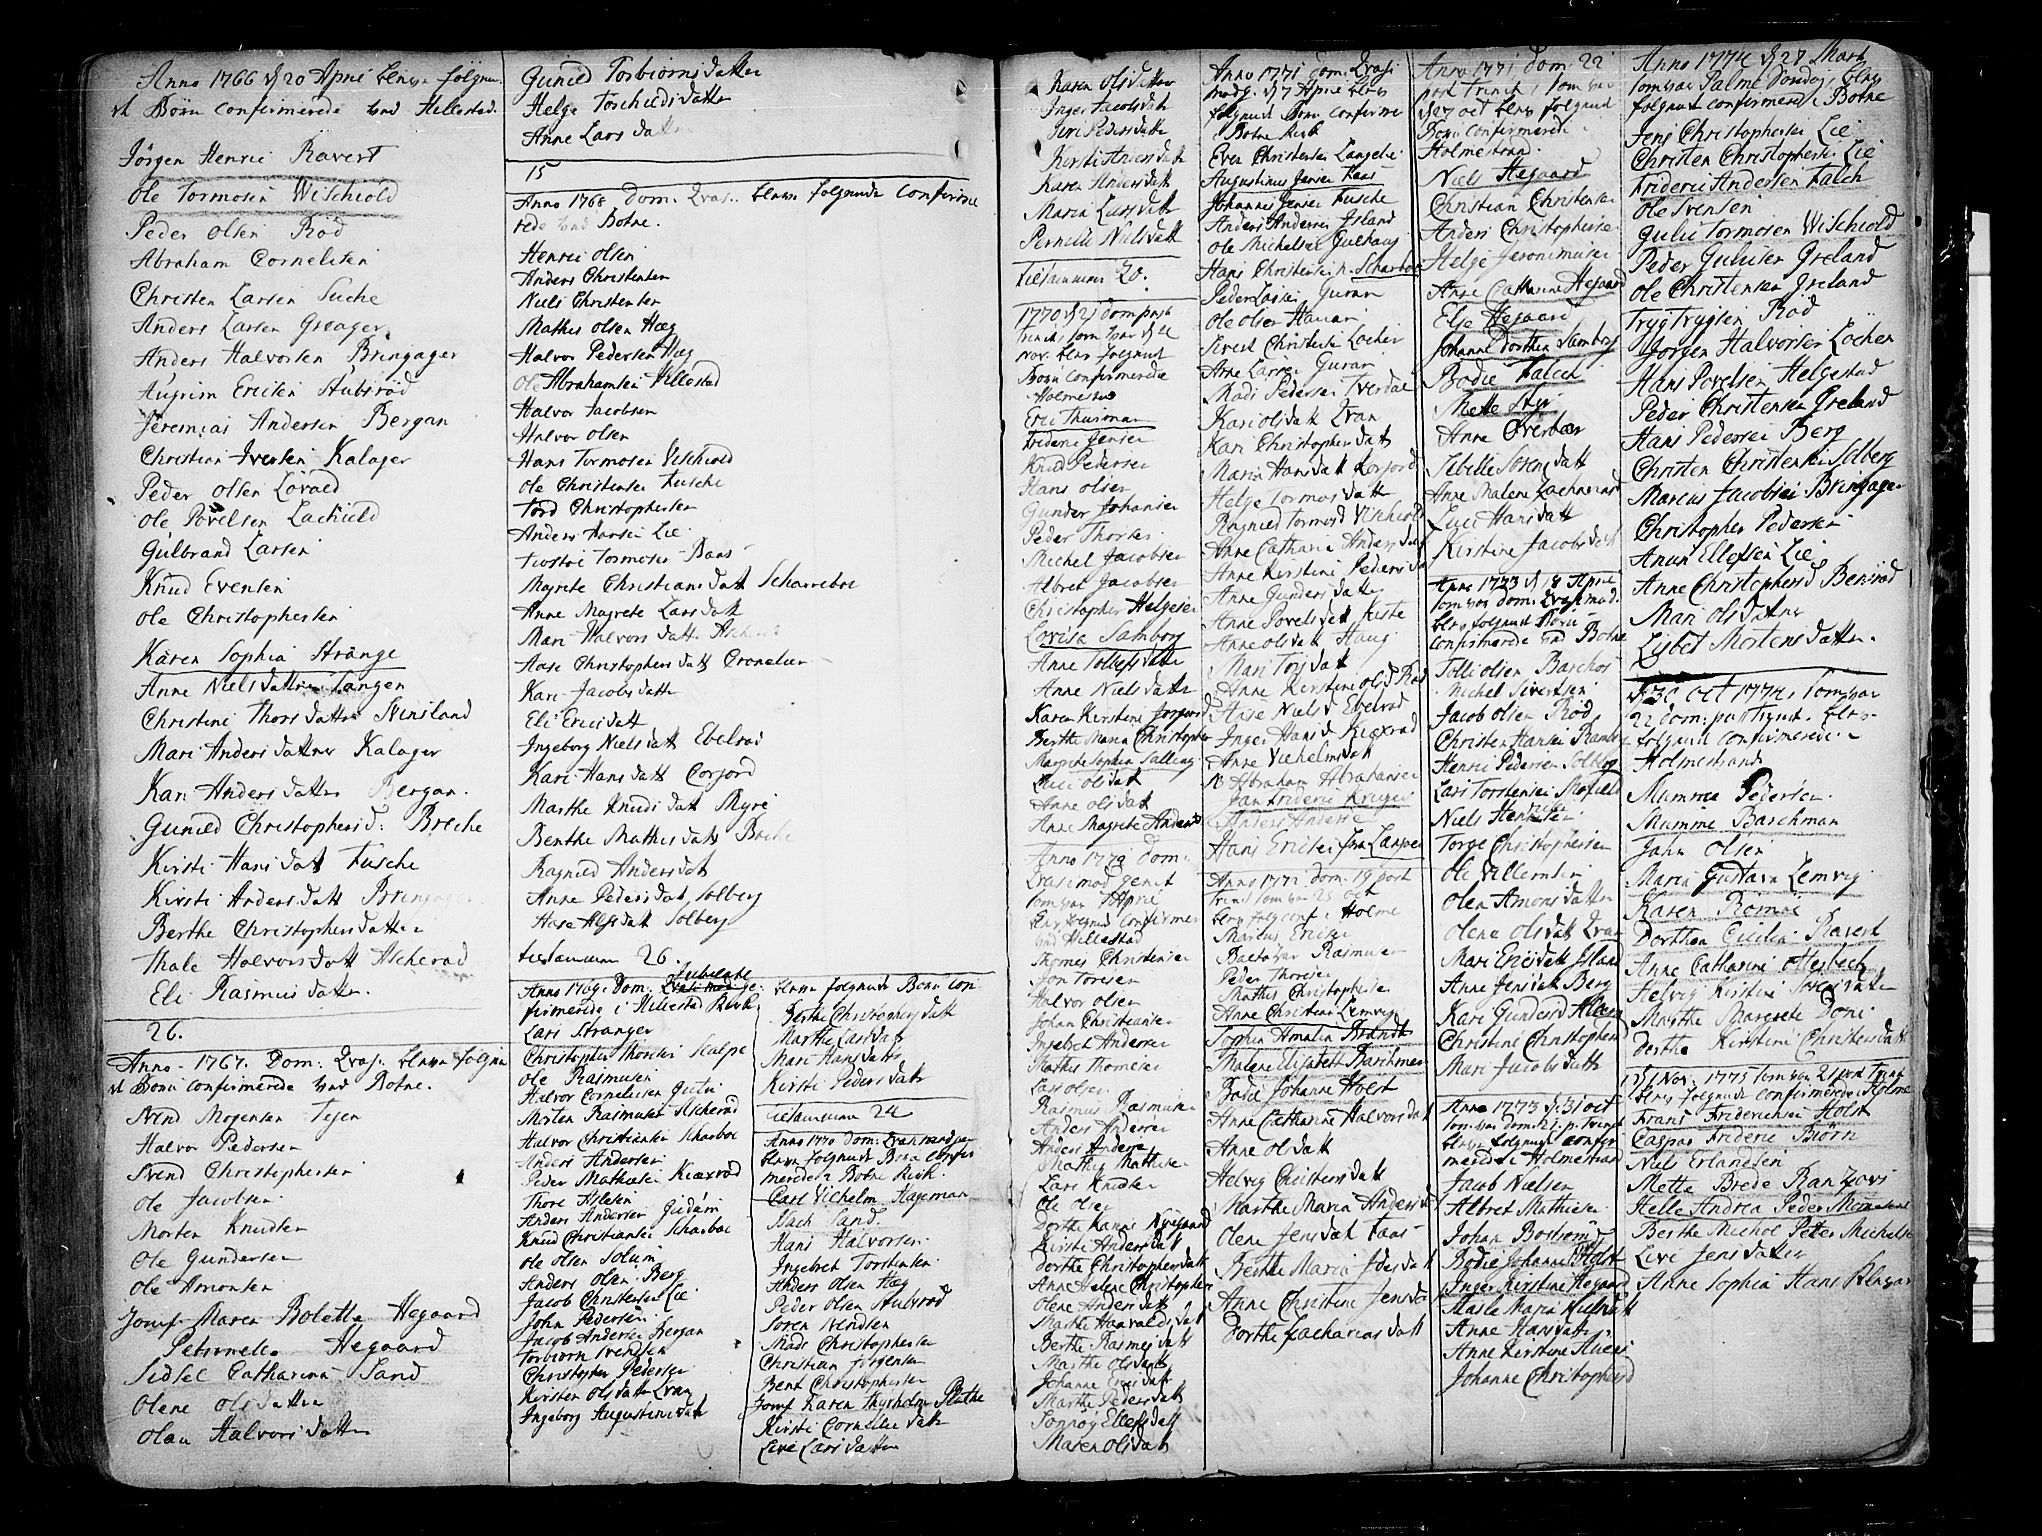 Anno 1766 d 20 April blev følgen
de Børn confirmerede ved Hillestad.
Jørgen Henric Ravert
Ole Tormosen Wischiold
Peder Olsen Rød
Abraham Cornelisen
Christen Larsen Suche
Anders Larsen Greager
Anders Halvorsen Bringager
Augrim Ericsen Stubsrød
Jeremias Andersen Bergan
Christian Iversen Kalager
Peder Olsen Lovald
Ole Povelsen Lachield
Gulbrand Larsen
Knud Evensen
Ole Christophersen
Karen Sophia Strange
Anne Nielsdatter Tangen
Christine Thorsdatter
Mari Andersdatter Kalager
Kari Andersdatter Bergan.
Gunild Christophersd: Breche
Kirsti Hansdatt Fusche
Kirsti Andersdatt Bringager
Berthe Christophersdatter
Thale Halvorsdatt Ascherød
Eli Rasmusdatter.
26.
Anno 1767. Dom: Qvas: bleve følgen
de Børn confirmerede ved Botne.
Svend Mogensen Tejen
Halvor Pedersen
Svend Christophersen
Ole Jacobsen
Morten Knudsen
Ole Gundersen
Ole Amonsen
Jomf Maren Bolette Hegaard
Petronelle Hegaard
Sidsel Catharina Sand
Olene Olsdatter
Olau Halvorsdatter
Gunild Torbiørnsdatter
Helge Toschieldsdatter
Anne Larsdatter
15
Anno 1768 Dom: Qvas: bleve følgende confirme
rede ved Botne.
Henric Olsen
Anders Christensen
Niels Christensen
Mathis Olsen Hæg
Halvor Pedersen Hæg
Ole Abrahamsen Hillestad
Halvor Jacobsen
Halvor Olsen
Hans Tormosen Vischiold
Ole Christensen Fusche
Tord Christophersen
Anders Hansen Lie
Tormosen Baas
Magrete Christiansdatt Scharreboe
Anne Magrete Larsdatt
Mari Halvorsdatter
Aase Christophersdatt
Kari Jacobsdatter
Eli Ericsdatt
Ingeborg Nielsdatt Ebelrød
Kari Hansdatt Corjord
Marthe Knudsdatt Myre
Benthe Mathisdatt Breche
Ragnild Andersdatt
Anne Pedersdatt Solberg
Aase Alfsdatt Solberg
tilsammen 26.
Anno 1769. Dom: Jubilate bleve følgende Børn con
firmerede i Hillestad Kirk
Lars Stranger
Christopher Thorsen Kalpe
Ole Rasmusen
Halvor Cornelisen
Morten Rasmusen Ascherød
Halvor Christiansen Scharboe
Anders Andersen
Peder Mathisen Kiærød
Thore
Anders Andersen
Knud Christiansen Scharboe
Ole Olsen Solum
Anders Olsen Berg
Jacob Christensen Lie
John Pedersen
Jacob Andersen Bergan
Torbiørn Svendsen
Christopher Pedersen
Kirsten Olsdatter Qvan
Ingeborg Augustinsdatt
Berthe Christophersdatt
Marthe Larsdatt
Mari Hansdatt
Kirsti Pedersdatt
tilsammen 24
Anno 1770 Dom: Qvasimodogen
bleve følgende Børn confir
merede i Botne Kirk.
Carl Vilhelm Hageman
Nach Sand.
Hans Halvorsen.
Ingebret Torstensen.
Anders Olsen Hæg
Peder Olsen Stubsrød
Søren Svendsen
Mads Christophersen
Christian Jørgensen
Bent Christophersen
Jomf Karen Thyrholm Bluthe
Kirsti Cornelisdatt
Live Larsdatter
Karen Olsdatter
Inger Jacobsdatt
Siri Pedersdatter
Kirsti Andersdatt
Karen Andersdatt
Maria Larsdatt
Pernille Nielsdatt
tilsammen 20.
1770 d 21 dom post
Trinit, som var d 4
Nov. blev følgende
Børn confirmerede
Holmestr
Eric Thurman
Frideric Jensen
Knud Pedersen
Hans Olsen
Gunder Johansen
Peder Thorsen
Michel Jacobsen
Albret Jacobsen
Christopher Helgesen
Lovisa Samborg
Anne Tollefsdatter
Anne Nielsdatter
Karen Kirstine
Berthe Maria Christopher
Margrete Sophia Salling
Luci Olsdatt
Anne Olsdatt
Anne Magrete Anders
Anno 1771 Dom:
Qvasimodogenit
som var April
blev følgende confirmer
ved Hillestad
Thomes Christensen
Jon Toresen
Halvor Olsen
Johan Christiansen
Ingebret Andersen
Mathis Thomesen
Lars Olsen
Rasmus Rasmusen
Anders Andersen
Anders Andersen
Mathis Mathisen
Lars Knudsen
Ole Olsen
Dorthe Hanna Nyegaard
Kirsti Andersdatt
Dorthe Christophersdatt
Anne Helene Christophers
Olene Andersdatt
Marthe Haavaldsdatt
Berthe Rasmusdatt
Marthe Olsdatt
Johanne Ericsdatt
Marthe Pedersdatt
Sonnøy Ellefsdatt
Maren Olsdatt
Anno 1771 Dom: Qvasi
modg. d 7 April blev
følgende Børn confirme
i Botne Kirk
Even Christensen Langelie
Augustinus Jensen Faas
Johannes Jensen Fusche
Anders Andersen Island
Ole Michelsen Gulhaug
Hans Christensen n. Scharboe
Peder Larsen Guran
Ole Olsen Hanan
Sivert Christensen Løchen
Arne Larsen Guran
Mads Pedersen Tverdal
Kari Olsdatt Qvan
Kari Christophersdatt
Maria Hansdatt Korjord
Helge Tormosdatt
Ragnild Tormosd Vischiold
Anne Catharina Andersdatt
Anne Kirstine Pedersda
Anne Gundersdatter
Anne Povelsdatt Kiste
Anne Olsdatt Haug
Mari Torsdatt
Anne Kirstine Olsd Rød
Anne Nielsd Ebelrød
Inger Hansd Kiærød
Anne Vilhelmsdatt
Abraham Abrahamsen
Jan Frideric Kruger
Anders Andersen
Hans Ericsen fra Langøe
Anno 1772 Dom. 19 post
Trinit som var 25 Oct
blev følgende i Holme
Marcus Ericsen
Baltazar Rasmusen
Peder Thoresen
Mathis Christophersen
Anne Christine Lemvig
Sophia Amalia Brandt
Malene Elisabeth Barchman
Bodil Johanne Holst
Anne Catharine Halvorsdatt
Anne Olsdatt
Helvig Christensdatt
Marthe Maria Andersd
Olene Jensdatt Faas
Berthe Maria Joensdatt
Anne Christine Jensda
Dorthe Zachariasdatt
Anno 1771 Dom: 22
post Trinit, som var
d 27 Oct blev følgende
Børn confirmerede
Holmestrand.
Niels Hegaard
Christian Christensen
Anders Christophersen
Helge Jeronimusen
Anne Cathrine Hegaard
Else Hegaard
Johanne Dorthea Samborg
Bodil Falch
Mette Styr
Anne Overbær
Sebille Sørensdatt
Anne Malene Zachariasd
Luci Hansdatt
Kirstine Jacobsdatt
Anno 1773 d 18 April
som var Dom: Qvasimod.
blev følgende Børn
confirmerede ved Botne
Tolli Olsen Baschos
Michel Sivertsen
Jacob Olsen Rød
Christen Hansen Ramberg
Henric Pedersen Solberg
Lars Torstensen
Niels Henricsen
Torge Christophersen
Ole Villemsen
Olea Amonsdatter
Olene Olsdatt Qvan
Mari Ericsdatt Island
Anne Jensdatt Berg
Kari Gundersd Hanan
Christine Christophersd
Mari Jacobsdatt
Anno 1773 d. 31 Oct
som var Dom. 21. p. Trinit
blev følgende confir
merede i Holmestrand
Jacob Nielsen
Albret Mathisen
Johan Bostrøm
Bodie Johanne Holst
Inger Kirstine Hegaard
Maria Nielsdatt
Anne Hansdatter
Anne Kirstine
Johanne Christophersd
Anno 1774 d 27 Marts
som var Palme Søndag, blev
følgende confirmeret i Botne
Jens Christophersen Lie
Christen Christophersen Lie
Frideric Andersen Falch
Ole Svensen
Gulic Tormosen Wischiold
Peder Gulicsen Greland
Ole Christensen Greland
Tryg Trygsen Rød
Jørgen Halvorsen Løchen
Hans Povelsen Helgestad
Peder Christensen Greland
Hans Pedersen Berg
Christen Christensen Solberg
Marcus Jacobsen Bringager
Christopher Pedersen
Anun Ellefsen Lie
Anne Christophersd Bensrød
Mari Olsdatter
Lisbet Mortensdatter.
d 30 Oct 1774, som var
22 dom: post Trinit. blev
følgende confirmerede
Holmestrand
Mumme Pedersen.
Mumme Barchman
John Olsen
Maria Gustava Lemvig
Karen Romøe
Dorthea Cicilia Ravert
Anne Catharine Ottesbech
Helvig Kirstine Sørensdatter
Marthe Margrete Dons
Berthe Kirstine Christensdatt
d 5 Nov. 1775 som var 21 post Trinit
blev følgende confirmerede i Holme
Frans Friderichsen Holst
Caspar Frideric Biørn
Niels Erlandsen
Mette Brede Ranzovs
Helle Andrea Peder
Berthe Michel Peter Michels
Live Jensdatter
Anne Sophia Hans